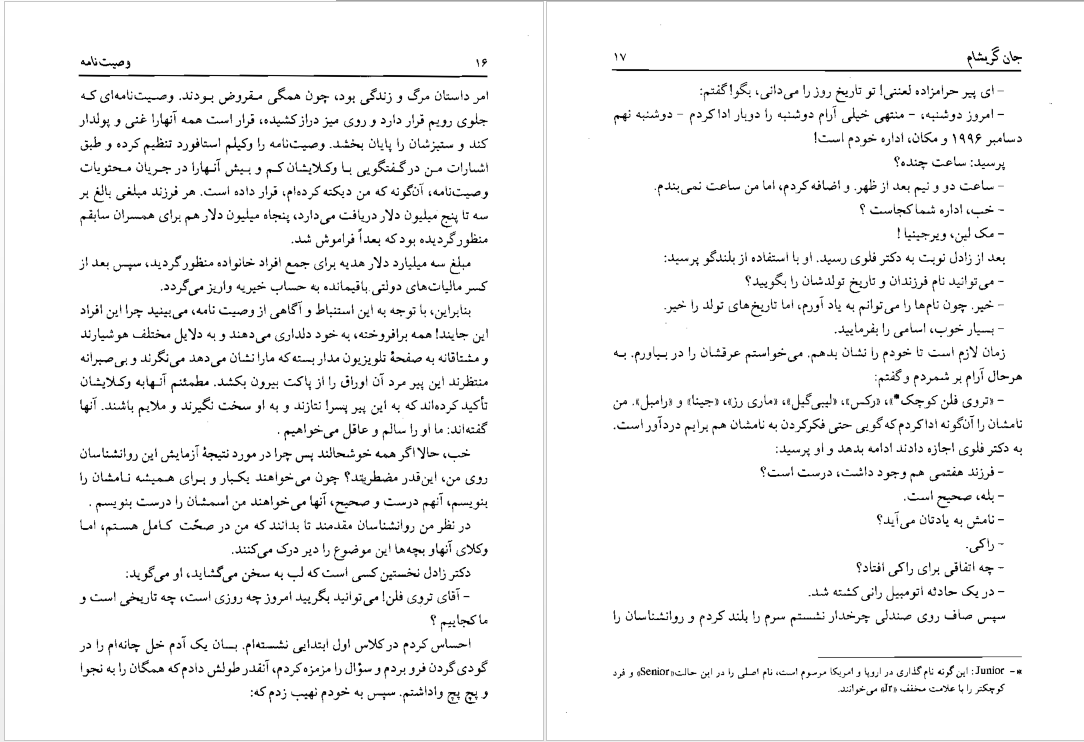 ۱۶ وصیت‌نامه
امر داستان مرگ و زندگی بود، چون همگی مقروض بودند. وصیت‌نامه‌ای که
جلوی رویم قرار دارد و روی میز دراز کشیده، قرار است همه آنهارا غنی و پولدار
کند و ستیزشان را پایان بخشد. وصیت‌نامه را وکیلم استافورد تنظیم کرده و طبق
اشارات من در گفتگویی با وکلایشان کم و بیش آنهارا در جریان محتویات
وصیت‌نامه، آن‌گونه که من دیکته کرده‌ام، قرار داده است. هر فرزند مبلغی بالغ بر
سه تا پنج میلیون دلار دریافت می‌دارد، پنجاه میلیون دلار هم برای همسران سابقم
منظور گردیده بود که بعداً فراموش شد.
مبلغ سه میلیارد دلار هدیه برای جمع افراد خانواده منظور گردید، سپس بعد از
کسر مالیات‌های دولتی باقیمانده به حساب خیریه واریز می‌گردد.
بنابراین، با توجه به این استنباط و آگاهی از وصیت نامه، می‌بینید چرا این افراد
این جایند! همه برافروخته، به خود دلداری می‌دهند و به دلایل مختلف هوشیارند
و مشتاقانه به صفحهٔ تلویزیون مدار بسته که مارا نشان می‌دهد می‌نگرند و بی‌صبرانه
منتظرند این پیر مرد آن اوراق را از پاکت بیرون بکشد. مطمئنم آنهابه وکلایشان
تأکید کرده‌اند که به این پیر پسر! نتازند و به او سخت نگیرند و ملایم باشند. آنها
گفته‌اند: ما او را سالم و عاقل می‌خواهیم .
خب، حالا اگر همه خوشحالند پس چرا در مورد نتیجهٔ آزمایش این روانشناسان
روی من، این‌قدر مضطربند؟ چون می‌خواهند یکبار و برای همیشه نامشان را
بنویسم، آنهم درست و صحیح، آنها می‌خواهند من اسمشان را درست بنویسم .
در نظر من روانشناسان مقدمند تا بدانند که من در صحّت کامل هستم، اما
وکلای آنهاو بچه‌ها این موضوع را دیر درک می‌کنند.
دکتر زادل نخستین کسی است که لب به سخن می‌گشاید، او می‌گوید:
– آقای تروی فلن! می‌توانید بگریید امروز چه روزی است، چه تاریخی است و
ما کجاییم ؟
احساس کردم در کلاس اول ابتدایی نشسته‌ام. بسان یک آدم خل چانه‌ام را در
گودی گردن فرو بردم و سؤال را مزمزه کردم، آنقدر طولش دادم که همگان را به نجوا
و پچ پچ واداشتم. سپس به خودم نهیب زدم که:
جان گریشام ۱۷
– ای پیر حرامزاده لعنتی! تو تاریخ روز را می‌دانی، بگو! گفتم:
– امروز دوشنبه، – منتهی خیلی آرام دوشنبه را دوبار ادا کردم – دوشنبه نهم
دسامبر ۱۹۹۶ و مکان، اداره خودم است!
پرسید: ساعت چنده؟
– ساعت دو و نیم بعد از ظهر. و اضافه کردم، اما من ساعت نمی‌بندم.
– خب، اداره شما کجاست ؟
– مک لین، ویرجینیا !
بعد از زادل نوبت به دکتر فلوی رسید. او با استفاده از بلندگو پرسید:
– می‌توانید نام فرزندان و تاریخ تولدشان را بگویید؟
– خیر. چون نام‌ها را می‌توانم به یاد آورم، اما تاریخ‌های تولد را خیر.
– بسیار خوب، اسامی را بفرمایید.
زمان لازم است تا خودم را نشان بدهم. می‌خواستم عرقشان را در بیاورم. به
هرحال آرام بر شمردم و گفتم:
– «تروی فلن کوچک*»، «رکس»، «لیبی‌گیل»، «ماری رز»، «جینا» و «رامبل». من
نامشان را آن‌گونه ادا کردم که گویی حتی فکرکردن به نامشان هم برایم دردآور است.
به دکتر فلوی اجازه دادند ادامه بدهد و او پرسید:
– فرزند هفتمی هم وجود داشت، درست است؟
– بله، صحیح است.
– نامش به یادتان می‌آید؟
– راکی.
– چه اتفاقی برای راکی افتاد؟
– در یک حادثه اتومبیل رانی کشته شد.
سپس صاف روی صندلی چرخدار نشستم سرم را بلند کردم و روانشناسان را
*– Junior: این گونه نام گذاری در اروپا و امریکا مرسوم است، نام اصلی را در این حالت «Senior» و فرد
کوچکتر را با علامت مخفف «Jr» می‌خوانند.